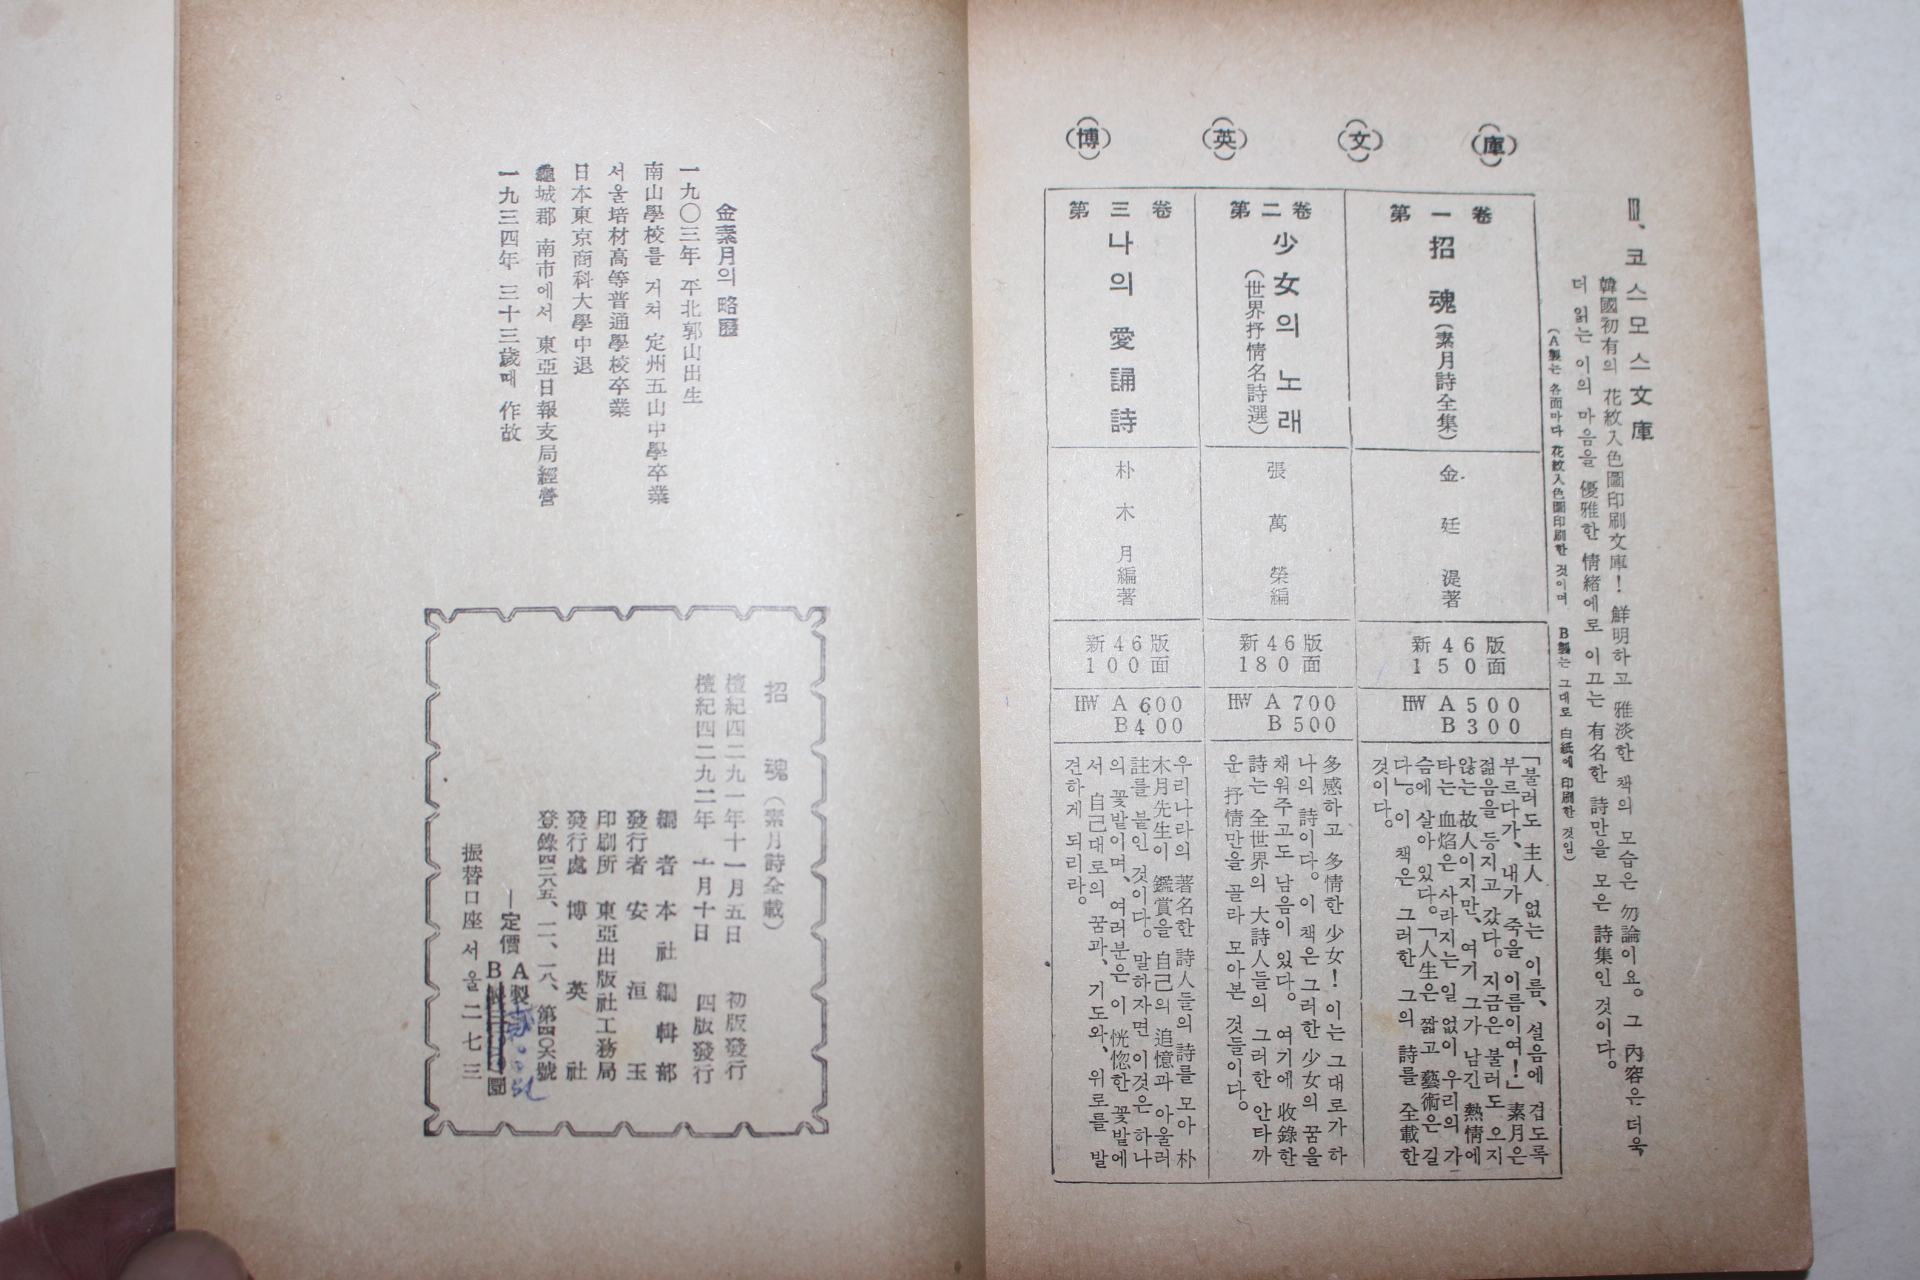 博 英 文 庫
Ⅲ、코스모스文庫
韓國初有의 花紋入色圖印刷文庫! 鮮明하고 雅淡한 책의 모습은 勿論이요。그 內容은 더욱
더 읽는 이의 마음을 優雅한 情緖에로 이끄는 有名한 詩만을 모은 詩集인 것이다。
(A製는 各面마다 花紋入色圖印刷한 것이며 B製는 그대로 白紙에 印刷한 것임)
第一卷
招魂(素月詩全集)
金廷湜著
新46版
150面
HW A 500
B 300
「불러도 主人 없는 이름、설음에 겹도록
부르다가、내가 죽을 이름이여!」素月은
젊음을 등지고 갔다。지금은 불러도 으지
않는 故人이지만、여기 그가 남긴 熱情에
타는 血焰은 사라지는 일 없이 우리의 가
슴에 살아 있다。「人生은 짧고 藝術은 길
다」。이 책은 그러한 그의 詩를 全載한
것이다。
第二卷
少女의 노래
(世界抒情名詩選)
張萬榮編
新46版
180面
HW A 700
B 500
多感하고 多情한 少女! 이는 그대로가 하
나의 詩이다。이 책은 그러한 少女의 꿈을
채워주고도 남음이 있다。여기에 收錄한
詩는 全世界의 大詩人들의 그러한 안타까
운 抒情만을 골라 모아본 것들이다。
第三卷
나의 愛誦詩
朴木月編著
新46版
100面
HW A 600
B 400
우리나라의 著名한 詩人들의 詩를 모아 朴
木月先生이 鑑賞을 自己의 追憶과 아울러
註를 붙인 것이다。말하자면 이것은 하나
의 꽃밭이며、여러분은 이 恍惚한 꽃밭에
서 自己대로의 꿈과、기도와、위로를 발
견하게 되리라。
金素月의 略歷
一九〇三年 平北郭山出生
南山學校를 거쳐 定州五山中學卒業
서울培材高等普通學校卒業
日本東京商科大學中退
龜城郡 南市에서 東亞日報支局經營
一九三四年 三十三歲때 作故
招魂(素月詩全載)
檀紀四二九一年十一月五日 初版發行
檀紀四二九二年 一月十日 四版發行
編者 本社編輯部
發行者 安洹玉
印刷所 東亞出版社工務局
發行處 博英社
登錄四二八五、一二、一八、第四〇六號
—定價 A製
B製三〇〇圜
振替口座 서울二七三